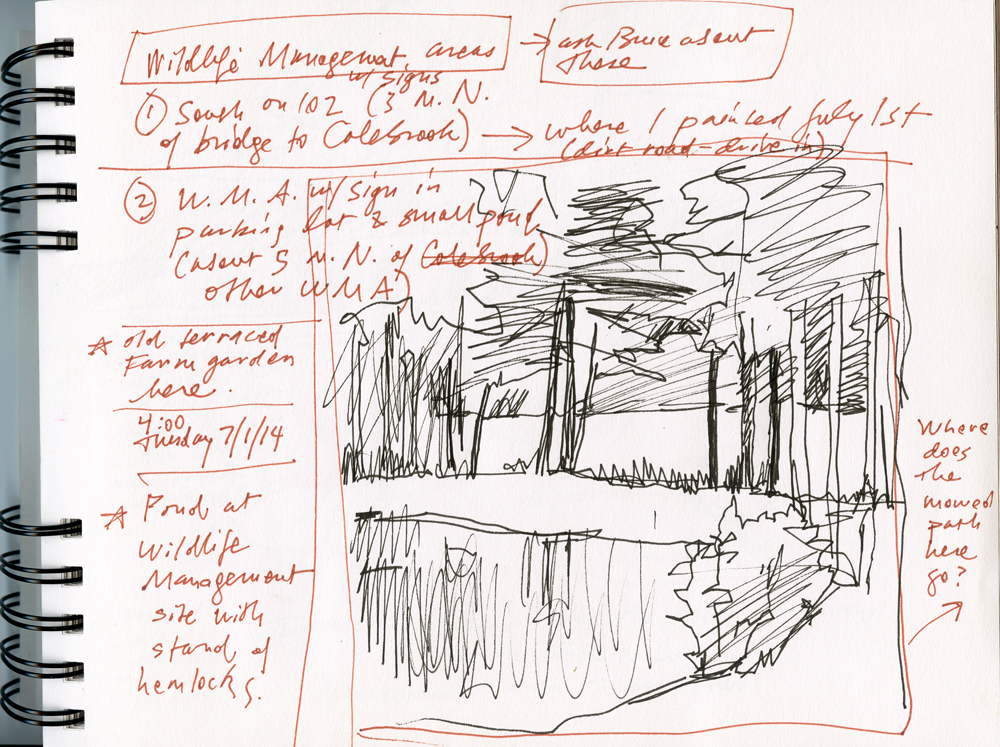 Wildlife Management areas
w/ signs
→ ask Bruce about
these
① South on 102 (3 M. N.
of bridge to Colebrook) → where I painted July 1st
(dirt road - drive in)
② W. M. A. w/ sign in
parking lot & small pond
(about 5 M. N. of Colebrook)
other WMA)
☆ old terraced
Farm garden
here.
4:00
Tuesday 7/1/14
☆ Pond at
Wildlife
Management
site with
stand of
hemlocks.
Where
does
the
mowed
path
here
go?